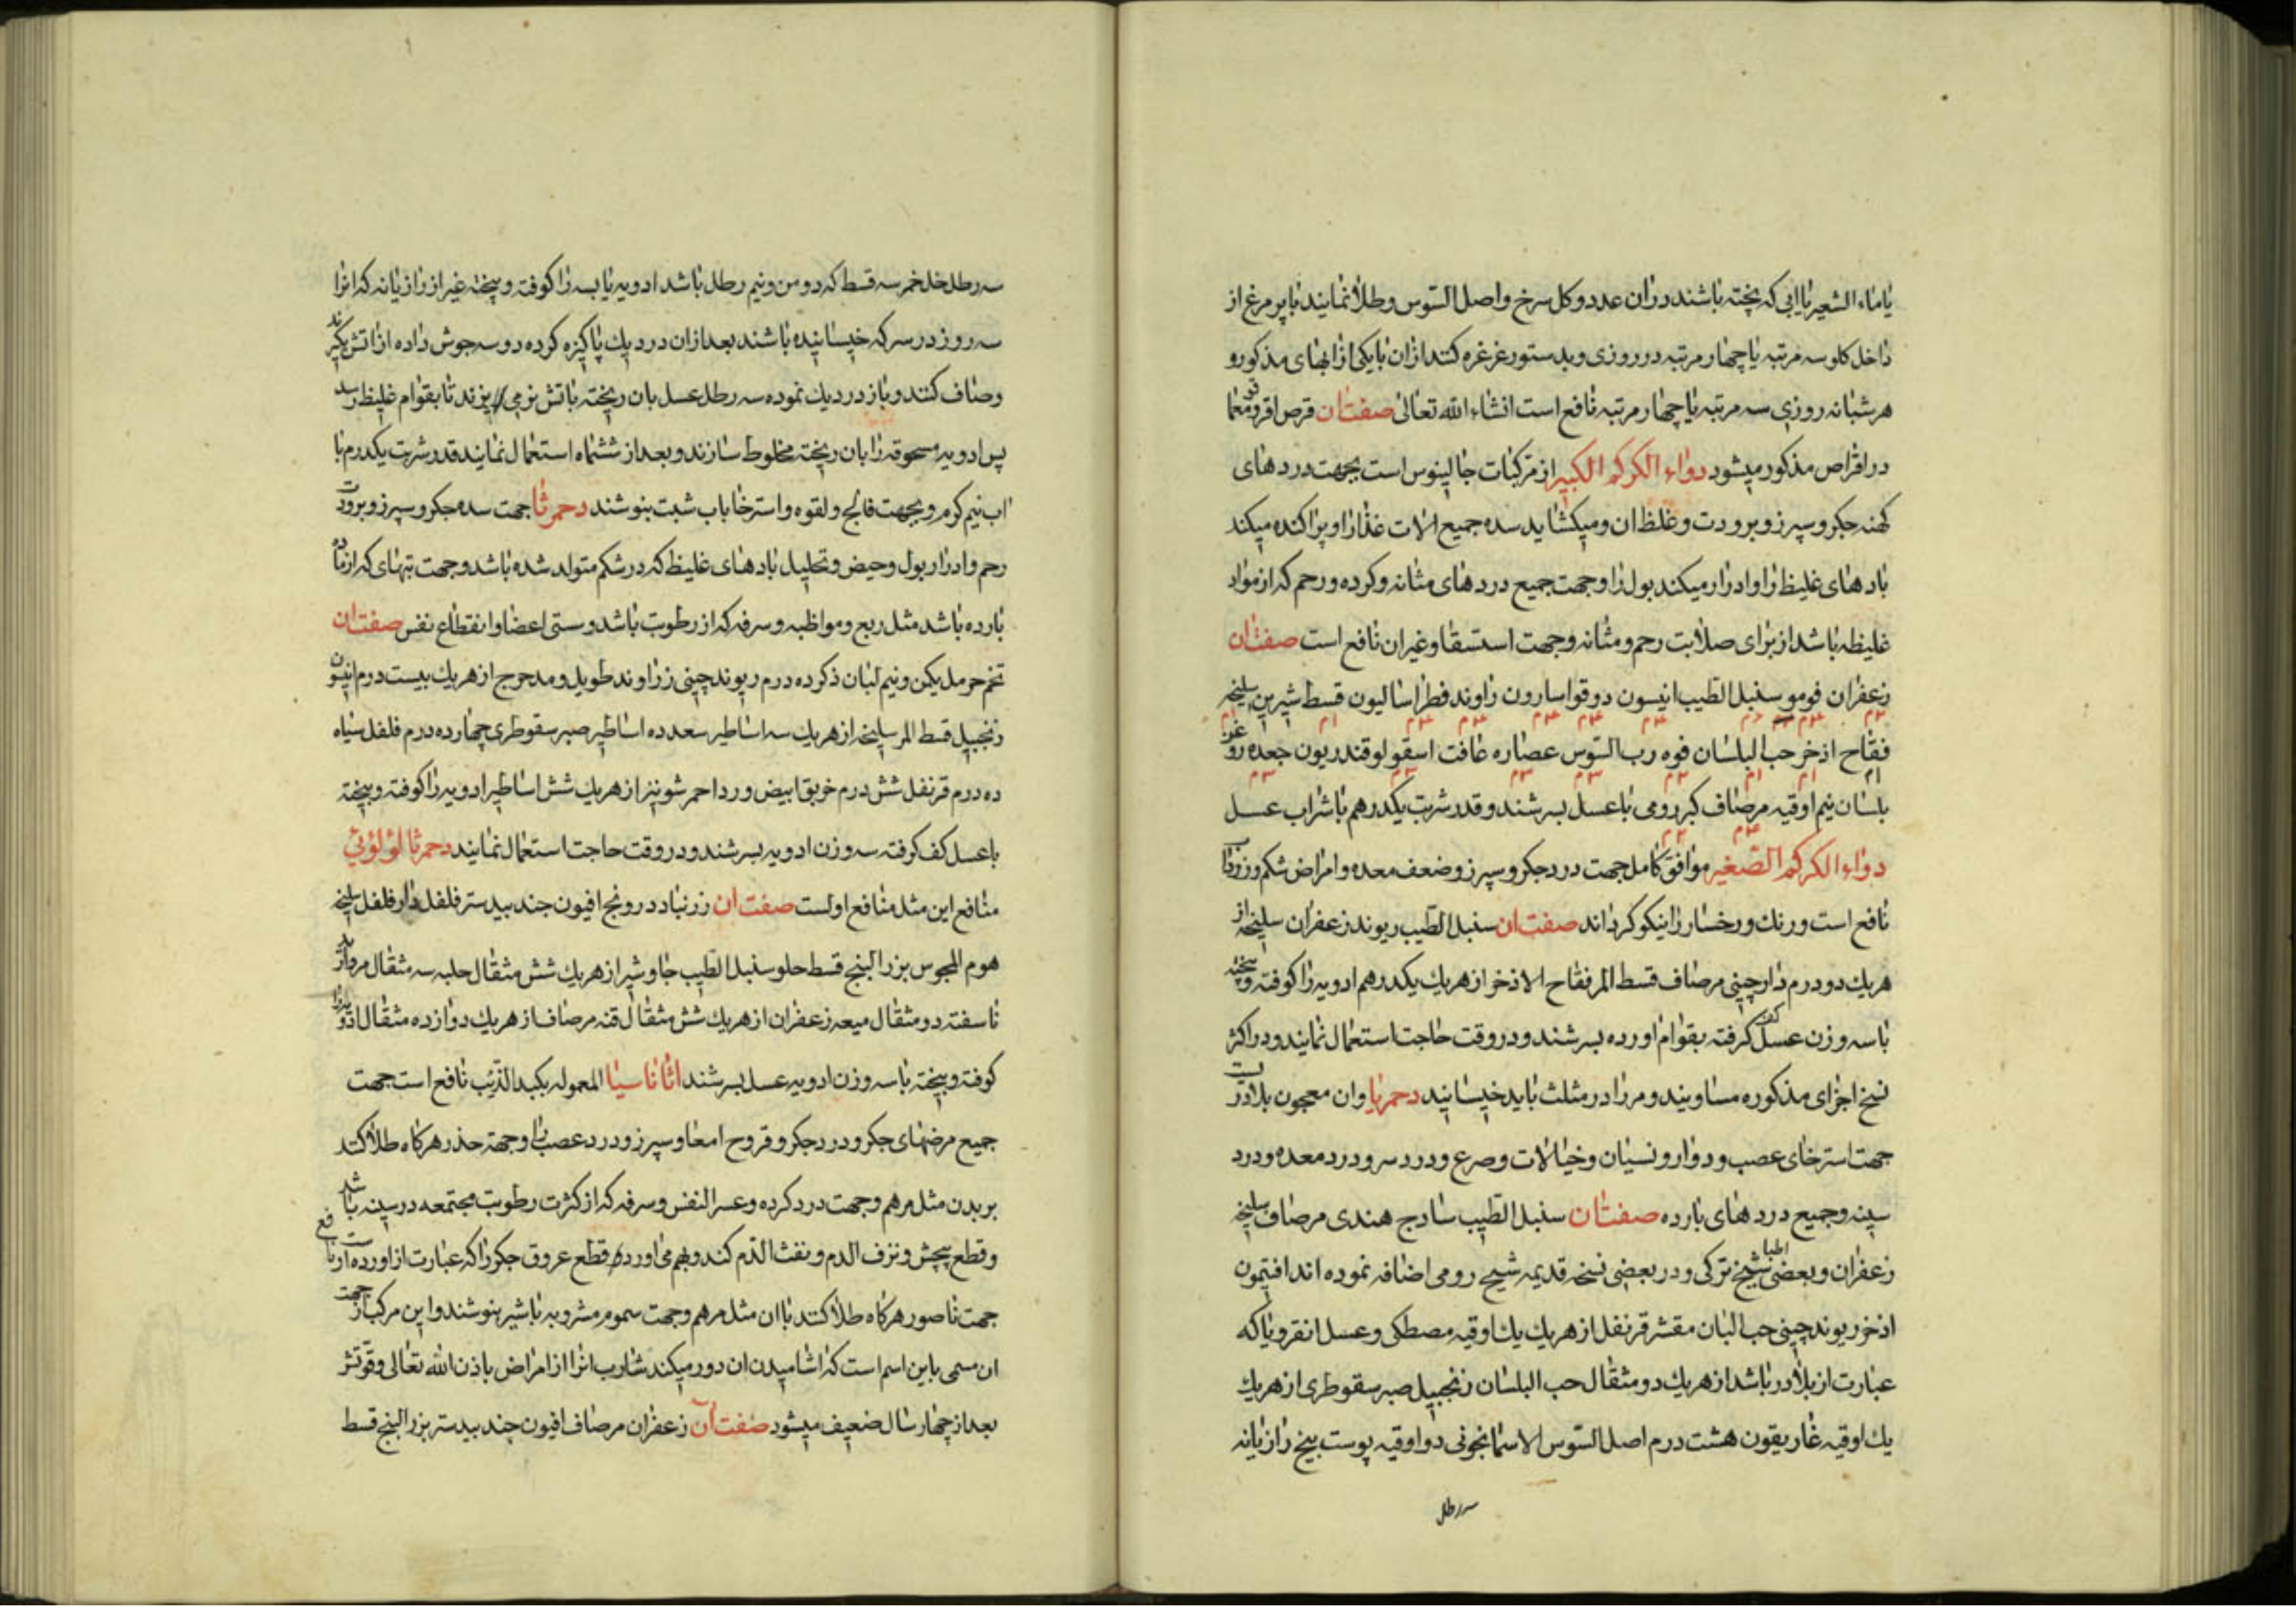 یا ماء الشعیر یا ابی که پخته باشند دران عدد و کل سرخ و اصل السوس و طلا نمایند با پر مرغ از
داخل کلو سه مرتبه یا چهار مرتبه در روزی و بدستور غرغره کنند ازان با یکی از ابهای مذکور و
هر شبانه روزی سه مرتبه یا چهار مرتبه نافع است انشاء الله تعالی صفت ان قرص
در اقراص مذکور میشود دواء الکرکم الکبیر از مرکبات جالینوس است بجهت دردهای
کهنه جکر و سپرز و برودت و غلظ ان و میکشاید سده جمیع الات غذا را و پراکنده میکند
بادهای غلیظ را و ادرار میکند بول را و جهت جمیع دردهای مثانه و کرده و رحم که از مواد
غلیظه باشد از برای صلابت رحم و مثانه و جهت استسقا و غیر ان نافع است صفت ان
زعفران فو مو سنبل الطیب انیسون دوقو اسارون زاوند فطراسالیون قسط شیرین سلیخه
فقاح اذخر حب البلسان فوه رب السوس عصاره غافت اسقولوقندریون جعده روغن
بلسان نیم اوقیه مرصاف کبر رومی با عسل بسرشند و قدر شربت یکدرهم با شراب عسل
دواء الکرکم الصغیر موافق کامل جهت درد جکر و سپرز و ضعف معده و امراض شکم و زرداب
نافع است و رنک و رخسار را نیکو کرداند صفت ان سنبل الطیب ریوند زعفران سلیخه از
هریك دو درم دارچینی مرصاف قسط المر فقاح الاذخر از هریك یکدرهم ادویه را کوفته و بیخته
با سه وزن عسل کف کرفته بقوام اورده بسرشند و در وقت حاجت استعمال نمایند و در اکثر
نسخ اجزای مذکوره مساویند و مر را در مثلث باید خیسانید دحمرنا وان معجون بلادر است
جهت استرخای عصب و دوار و نسیان و خیالات و صرع و درد سر و درد معده و درد
سینه و جمیع دردهای بارده صفت ان سنبل الطیب سادج هندی مرصاف سلیخه
زعفران و بعضی اطبا شیخ ترکی و در بعضی نسخه قدیمه شیح رومی اضافه نموده اند افتیمون
اذخر ریوند چینی حب البان مقشر قرنفل از هریك یك اوقیه مصطکی و عسل انقرویا که
عبارت از بلادر باشد از هریك دو مثقال حب البلسان زنجبیل صبر سقوطری از هریك
یك اوقیه غاریقون هشت درم اصل السوس الاسمانجونی دو اوقیه پوست بیخ رازیانه
سه رطل
سه رطل خل خمر سه قسط که دو من و نیم رطل باشد ادویه یابسه را کوفته و بیخته غیر از رازیانه که انرا
سه روز در سرکه خیسانیده باشند بعد ازان در دیك پاکیزه کرده دو سه جوش داده از اتش بکیرند
و صاف کنند و باز در دیك نموده سه رطل عسل بان ریخته باتش نرمی پزند تا بقوام غلیظ رسد
پس ادویه مسحوقه را بان ریخته مخلوط سازند و بعد از ششماه استعمال نمایند قدر شربت یکدرم با
اب نیم کرم و بجهت فالج و لقوه و استرخا باب شبت بنوشند دحمرثا جهت سده جکر و سپرز و برودت
رحم و ادرار بول و حیض و تحلیل بادهای غلیظ که در شکم متولد شده باشد و جهت تبهای که از ماده
بارده باشد مثل ربع و مواظبه و سرفه که از رطوبت باشد و سستی اعضا و انقطاع نفس صفت ان
تخم حرمل یکمن و نیم لبان ذکر ده درم ریوند چینی زراوند طویل و مدحرج از هریك بیست درم افیون
زنجبیل قسط المر سلیخه از هریك سه اساطیر سعد ده اساطیر صبر سقوطری چهارده درم فلفل سیاه
ده درم قرنفل شش درم خربق ابیض ورد احمر شونیز از هریك شش اساطیر ادویه را کوفته و بیخته
با عسل کف کرفته سه وزن ادویه بسرشند و در وقت حاجت استعمال نمایند دحمرثا لؤلؤئی
منافع این مثل منافع اولست صفت ان زرنباد درونج افیون جند بیدستر فلفل دار فلفل سلیخه
هوم المجوس بزر البنج قسط حلو سنبل الطیب جاوشیر از هریك شش مثقال حلبه سه مثقال مروارید
ناسفته دو مثقال میعه زعفران از هریك شش مثقال قنه مرصاف از هریك دوازده مثقال ادویه را
کوفته و بیخته با سه وزن ادویه عسل بسرشند اثاناسیا المعموله بکبد الذئب نافع است جهت
جمیع مرضهای جکر و درد جکر و قروح امعا و سپرز و درد عصب را و جهة حذر هرکاه طلا کنند
بر بدن مثل مرهم و جهت درد کرده و عسر النفس و سرفه که از کثرت رطوبت مجتمعه در سینه باشد
و قطع پیچش و نزف الدم و نفث الدم کند و بهم می اورد قطع عروق جکر را که عبارت از اورده است و نافع
جهت ناصور هرکاه طلا کنند با ان مثل مرهم و جهت سموم مشروبه با شیر بنوشند و این مرکب از جهت
ان مسمی باین اسم است که اشامیدن ان دور میکند شارب انرا از امراض باذن الله تعالی و قوتش
بعد از چهار سال ضعیف میشود صفت ان زعفران مرصاف افیون جند بیدستر بزر البنج قسط